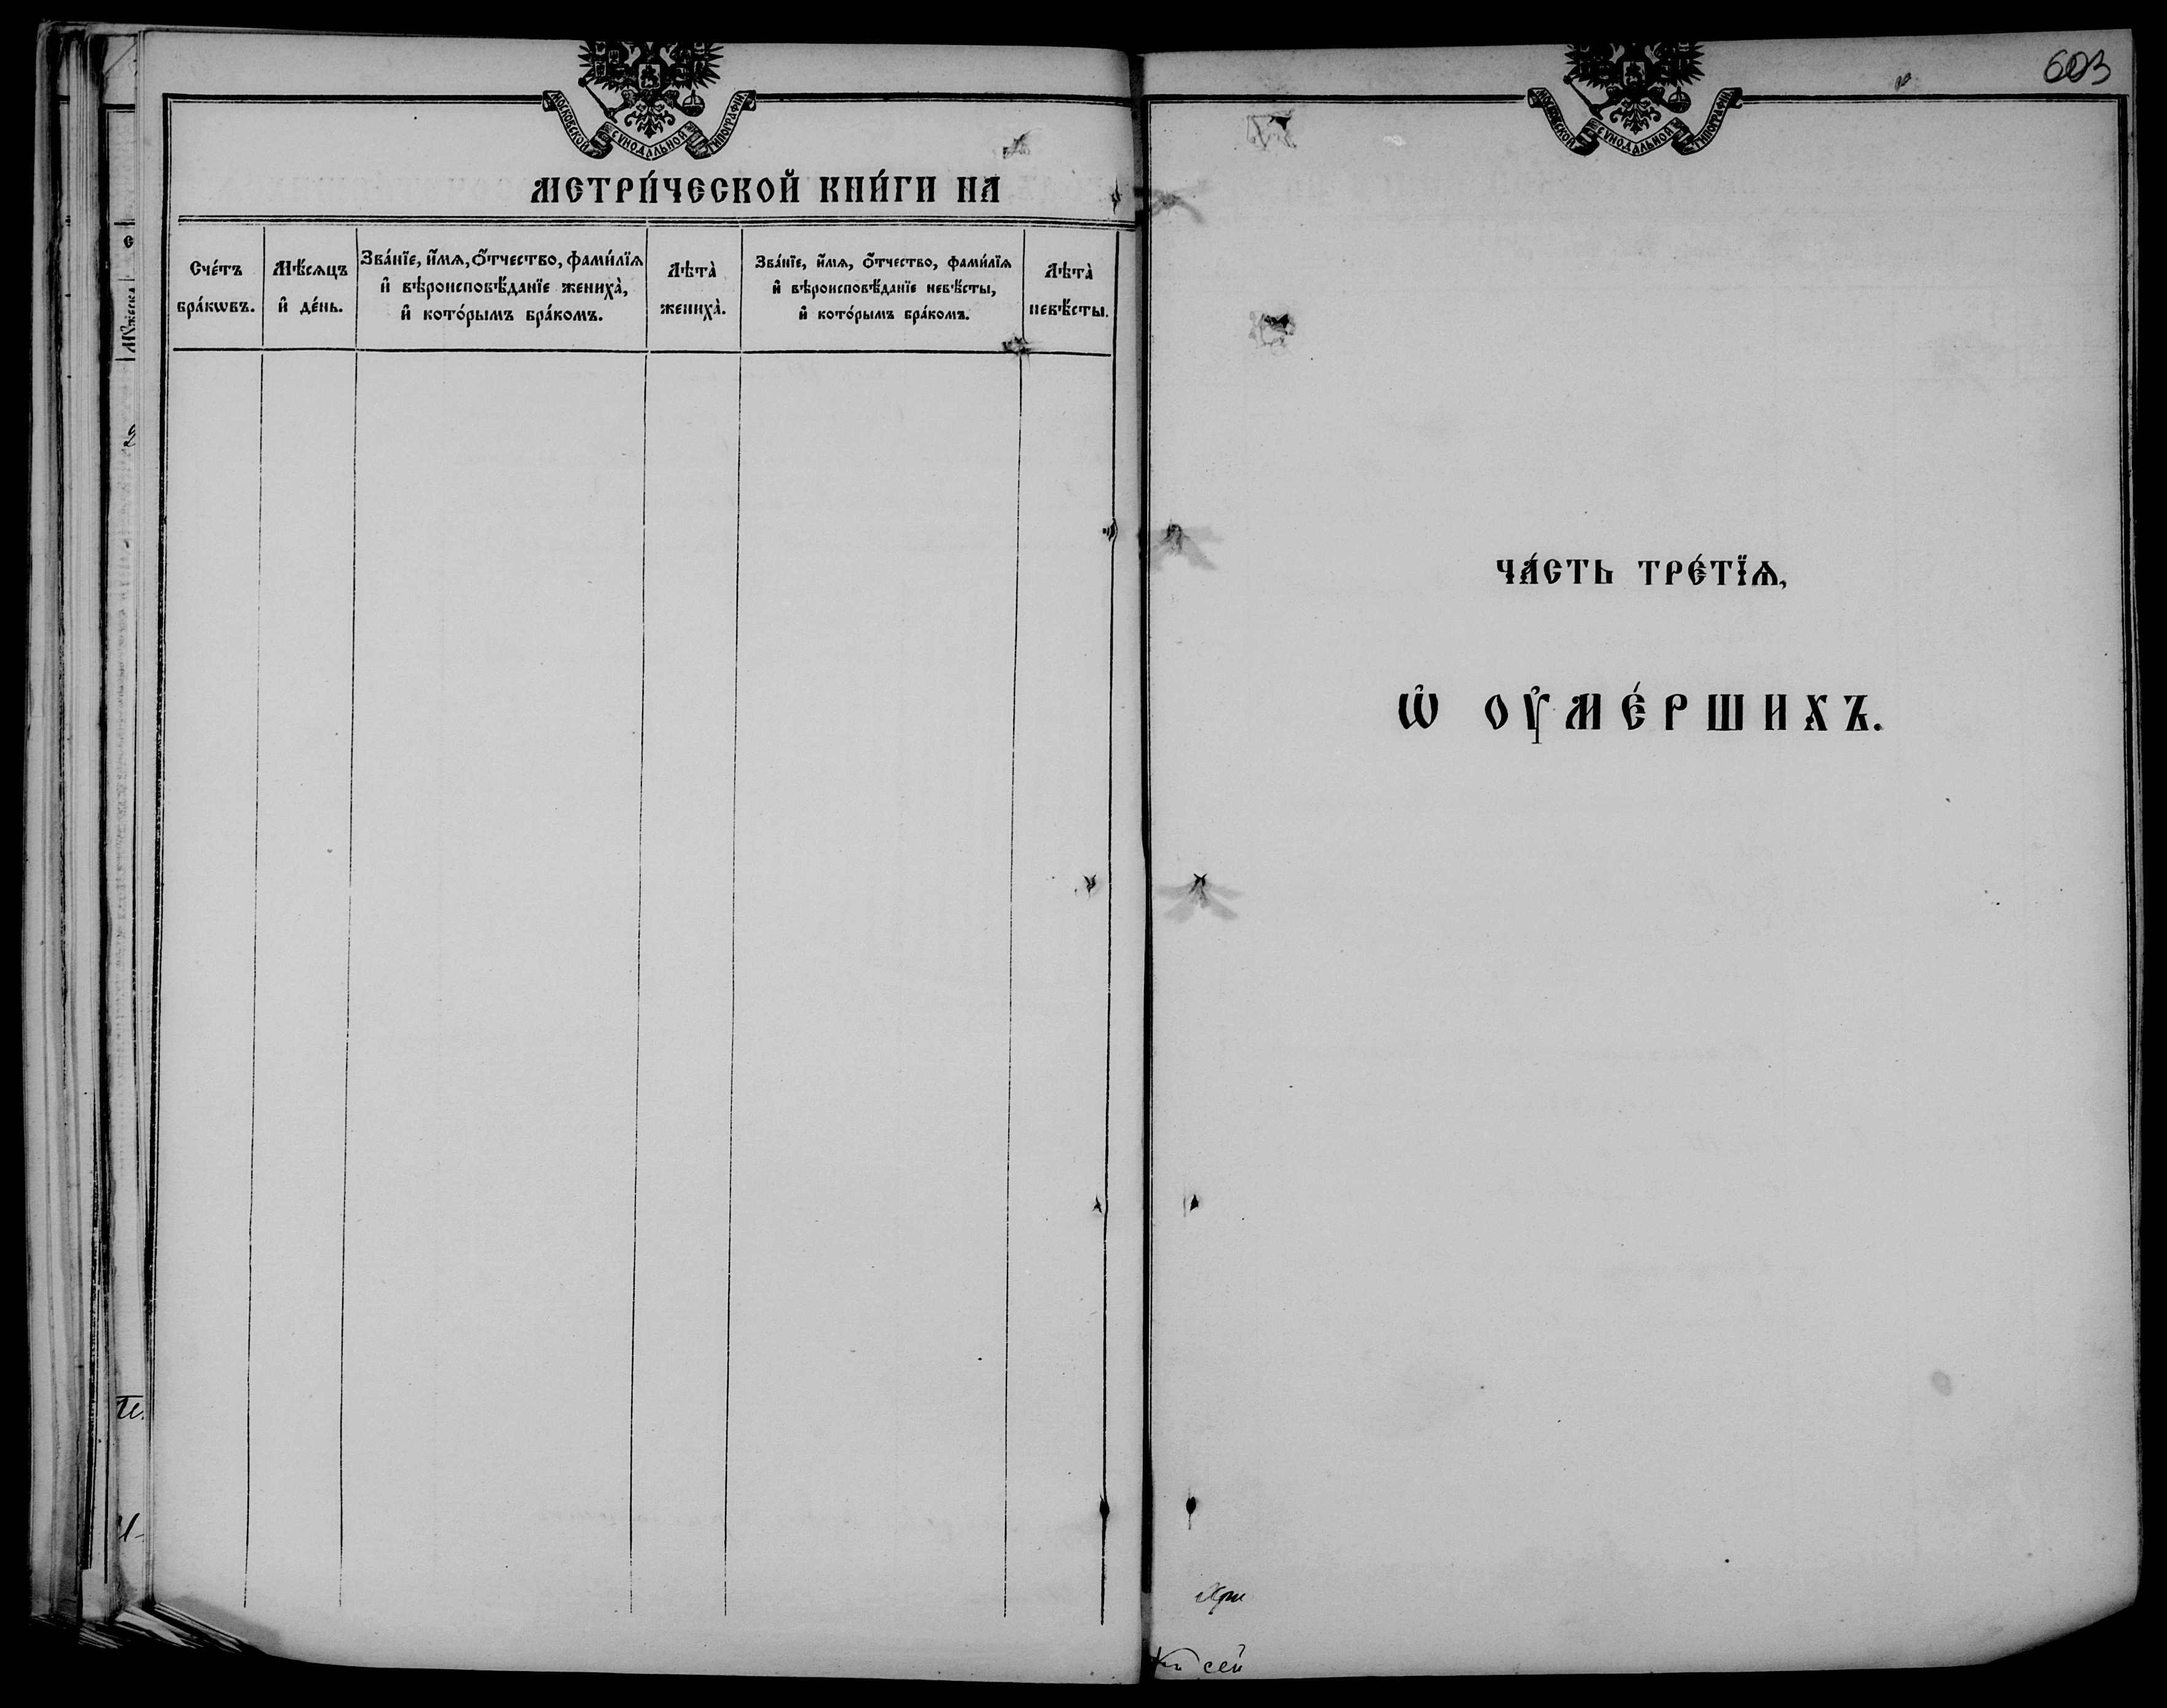 МОСКОВСКОЙ СѴНОДАЛЬНОЙ ТИПОГРАФІИ.
МЕТРИ́ЧЕСКОЙ КНИ́ГИ НА
Сче́тъ бра́кѡвъ.
Мѣ́сѧцъ и҆ де́нь.
Зва́нїе, и҆́мѧ, ѻ҆́тчество, фами́лїѧ
и҆ вѣроисповѣ́данїе жениха̀,
и҆ кото́рымъ бра́комъ.
Лѣта̀ жениха̀.
Зва́нїе, и҆́мѧ, ѻ҆́тчество, фами́лїѧ
и҆ вѣроисповѣ́данїе невѣ́сты,
и҆ кото́рымъ бра́комъ.
Лѣта̀ невѣ́сты.
603
МОСКОВСКОЙ СѴНОДАЛЬНОЙ ТИПОГРАФІИ.
ЧА́СТЬ ТРЕ́ТЇѦ,
Ѡ҆ ОУ҆МЕ́РШИХЪ.
сей